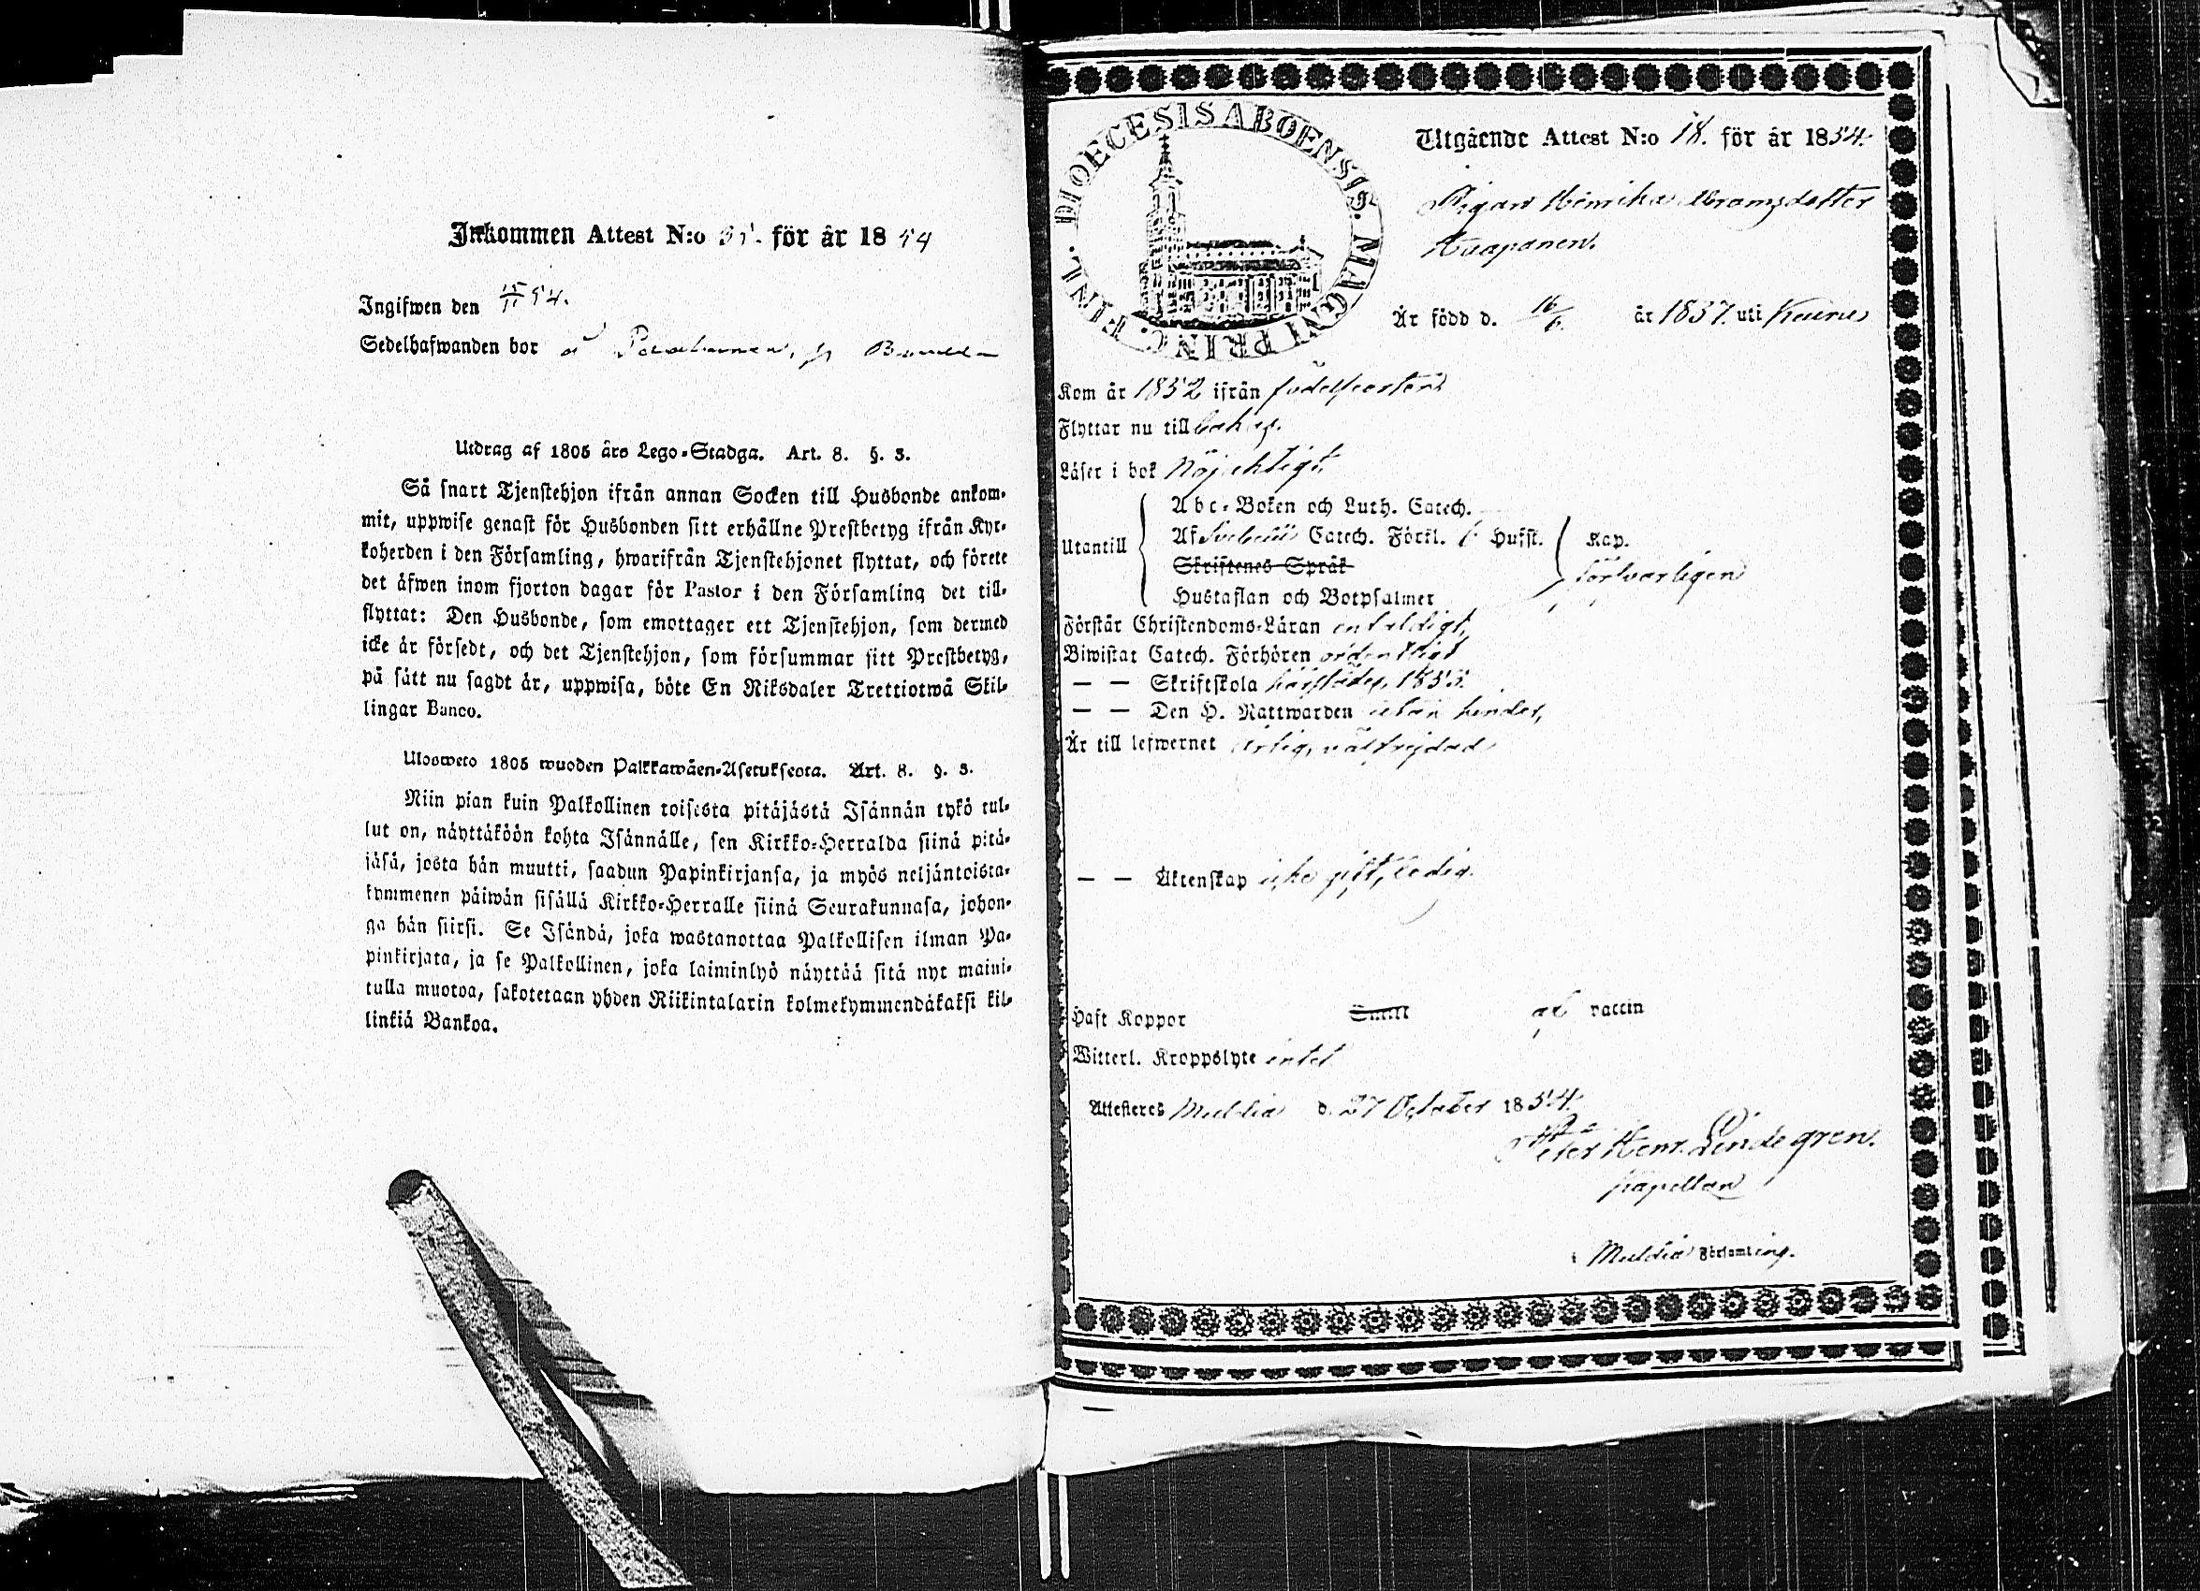 Inkommen Attest N:o 35. för år 1854
Ingifwen den 15/11 54.
Sedelhafwanden bor å
Utdrag af 1805 års Lego-Stadga. Art. 8. §. 3.
Så snart Tjenstehjon ifrån annan Socken till Husbonde ankom-
mit, uppwise genast för Husbonden sitt erhållne Prestbetyg ifrån Kyr-
koherden i den Församling, hwarifrån Tjenstehjonet flyttat, och förete
det äfwen inom fjorton dagar för Pastor i den Församling det till-
flyttat: Den Husbonde, som emottager ett Tjenstehjon, som dermed
icke är försedt, och det Tjenstehjon, som försummar sitt Prestbetyg,
på sätt nu sagdt är, uppwisa, böte En Riksdaler Trettiotwå Skil-
lingar Banco.
Ulosweto 1805 wuoden Palkkawäen-Asetuksesta. Art. 8. §. 3.
Niin pian kuin Palkollinen toisesta pitäjästä Isännän tykö tul-
lut on, näyttäköön kohta Isännälle, sen Kirkko-Herralda siinä pitä-
jäsä, josta hän muutti, saadun Papinkirjansa, ja myös neljäntoista-
kymmenen päiwän sisällä Kirkko-Herralle siinä Seurakunnasa, johon-
ga hän siirsi. Se Isändä, joka wastanottaa Palkollisen ilman Pa-
pinkirjata, ja se Palkollinen, joka laiminlyö näyttää sitä nyt maini-
tulla muotoa, sakotetaan yhden Riikintalarin kolmekymmendäkaksi kil-
linkiä Bankoa.
DIOECESIS ABOENSIS. MAGNI PRINC. FINL.
Utgående Attest N:o 18. för år 1854.
Pigan Henrika Abramsdotter
Haapanen.
Är född d. 16/6. år 1837. uti Keuru
Kom år 1852 ifrån födelseorten
Flyttar nu till bakas.
Läser i bok nöjaktigt
Abc-Boken och Luth. Catech.
Utantill Af Svebelii Catech. Förkl. 6 Hufst. Kap.
Skriftenes Språk försvarligen
Hustaflan och Botpsalmer
Förstår Christendoms-Läran enfaldigt,
Biwistat Catech. Förhören ordentligt
— — Skriftskola härstädes, 1853.
— — Den H. Nattwarden utan hinder,
Är till lefwernet ärlig, välfrejdad
— — Äktenskap icke gift, ledig.
Haft Koppor Småll af vaccin
Witterl. Kroppslyte intet
Attesteres Muldia d. 27 October 1854.
Peter Henr. Lindegren.
Kapellan
i Muldia Församling.